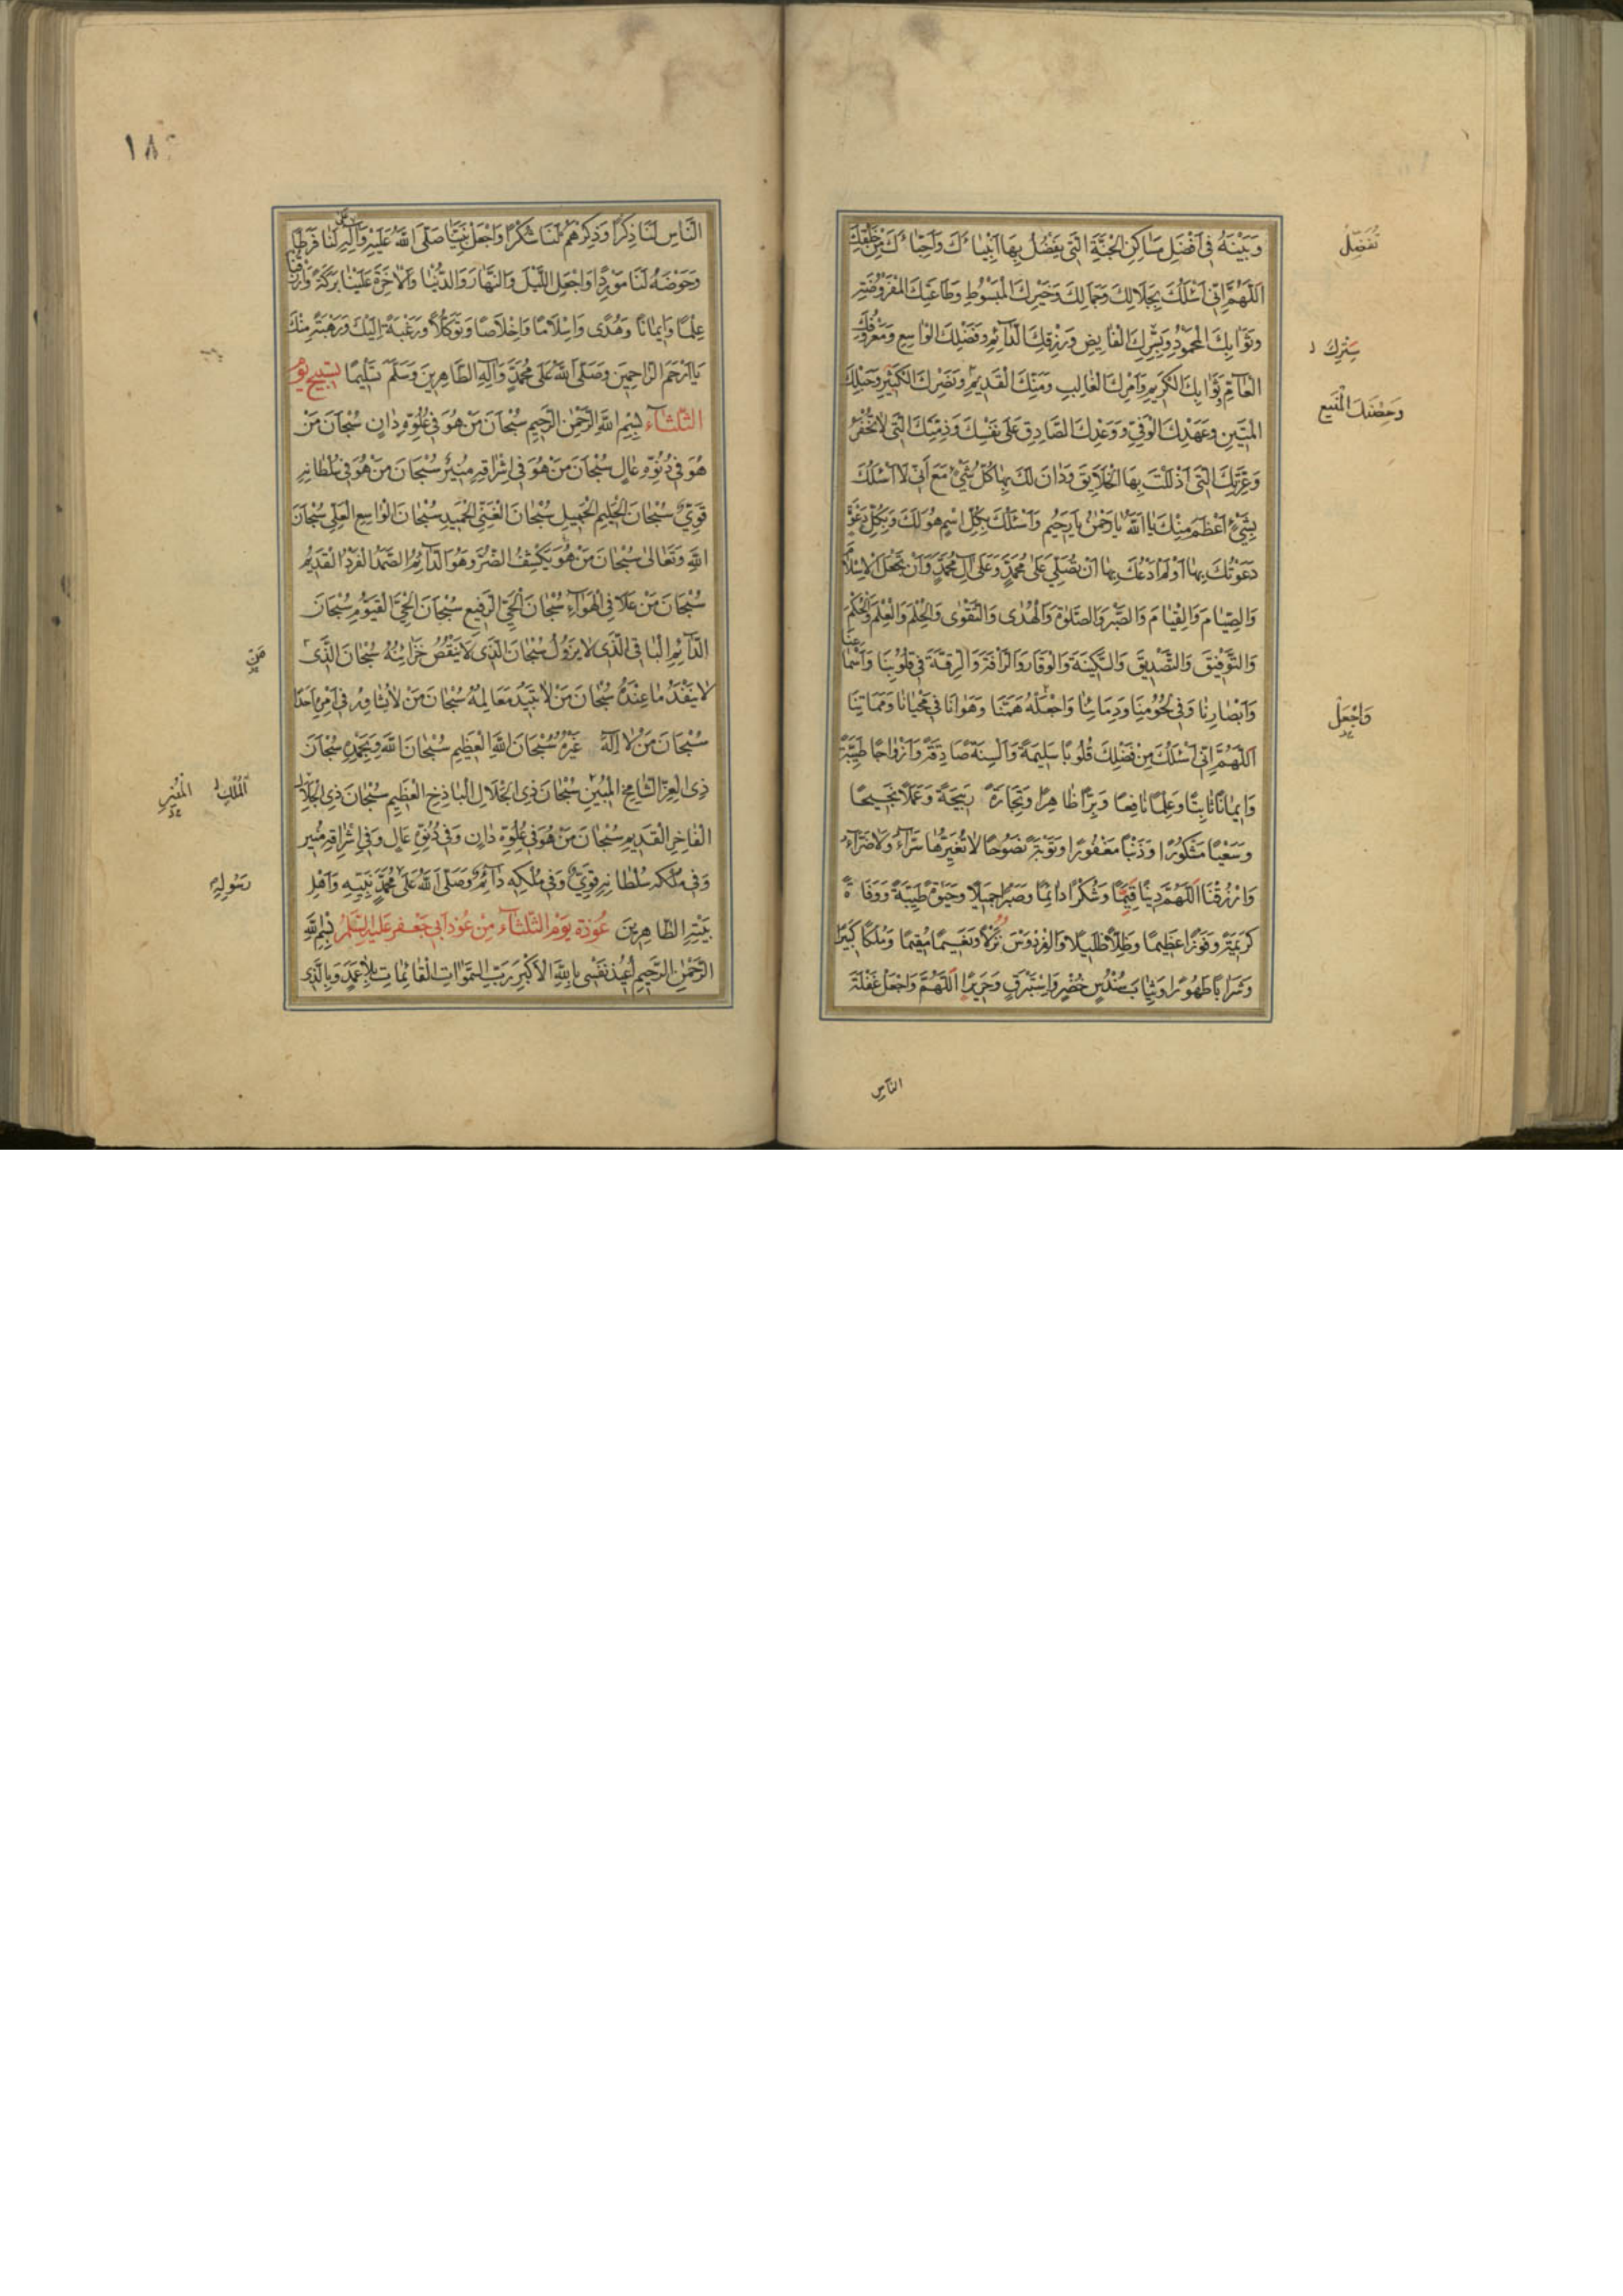 وَبَيْنَهُ فِي اَفْضَلِ مَسَاكِنِ الْجَنَّةِ الَّتِي يَفْضُلُ بِهَا اَنْبِيَاءَكَ وَاَحِبَّاءَكَ مِنْ خَلْقِكَ
تُفَضِّلُ
اَللّٰهُمَّ اِنِّي اَسْئَلُكَ بِجَلَالِكَ وَجَمَالِكَ وَخَيْرِكَ الْمَبْسُوطِ وَطَاعَتِكَ الْمَفْرُوضَةِ
وَثَوَابِكَ الْمَحْمُودِ وَبِسِّرِكَ الْفَايِضِ وَرِزْقِكَ الدَّآئِمِ وَفَضْلِكَ الْوَاسِعِ وَمَعْرُوفِكَ
سِتْرِكَ
الْعَآمِّ وَثَوَابِكَ الْكَرِيمِ وَاَمْرِكَ الْغَالِبِ وَمَنِّكَ الْقَدِيمِ وَنَصْرِكَ الْكَبِيْرِ وَحَبْلِكَ
وَحِصْنِكَ الْمَنِيعِ
الْمَتِيْنِ وَعَهْدِكَ الْوَفِيِّ وَوَعْدِكَ الصَّادِقِ عَلٰى نَفْسِكَ وَذِمَّتِكَ الَّتِي لَا تُخْفَرُ
وَعِزَّتِكَ الَّتِي اَذْلَلْتَ بِهَا الْخَلَايِقَ وَدَانَ لَكَ بِهَا كُلُّ شَيْءٍ مَعَ اَنِّي لَا اَسْئَلُكَ
بِشَيْءٍ اَعْظَمَ مِنْكَ يَا اَللّٰهُ يَا رَحْمٰنُ يَا رَحِيْمُ وَاَسْئَلُكَ بِكُلِّ اسْمٍ هُوَ لَكَ وَبِكُلِّ دَعْوَةٍ
دَعَوْتُكَ بِهَا اَوْ لَمْ اَدْعُكَ بِهَا اَنْ تُصَلِّيَ عَلٰى مُحَمَّدٍ وَعَلٰى اٰلِ مُحَمَّدٍ وَاَنْ تَجْعَلَ الْاِسْلَامَ
وَالصِّيَامَ وَالْقِيَامَ وَالصَّبْرَ وَالصَّلٰوةَ وَالْهُدٰى وَالتَّقْوٰى وَالْحِلْمَ وَالْعِلْمَ وَالْحُكْمَ
وَالتَّوْفِيْقَ وَالتَّصْدِيْقَ وَالسَّكِيْنَةَ وَالْوَقَارَ وَالرَّاْفَةَ وَالرِّقَّةَ فِي قُلُوْبِنَا وَاَسْمَاعِنَا
وَاَبْصَارِنَا وَفِي لُحُوْمِنَا وَدِمَائِنَا وَاجْعَلْهُ هَمَّنَا وَهَوَانَا فِي مَحْيَانَا وَمَمَاتِنَا
وَاجْعَلْ
اَللّٰهُمَّ اِنِّي اَسْئَلُكَ مِنْ فَضْلِكَ قُلُوبًا سَلِيْمَةً وَاَلْسِنَةً صَادِقَةً وَاَزْوَاجًا طَيِّبَةً
وَاِيمَانًا ثَابِتًا وَعِلْمًا نَافِعًا وَبِرًّا ظَاهِرًا وَتِجَارَةً رَبِيحَةً وَعَمَلًا نَجِيْحًا
وَسَعْيًا مَشْكُوْرًا وَذَنْبًا مَغْفُوْرًا وَتَوْبَةً نَصُوْحًا لَا تُغَيِّرُهَا سَرَّآءُ وَلَا ضَرَّآءُ
وَارْزُقْنَا اَللّٰهُمَّ دِيْنًا قَيِّمًا وَشُكْرًا دَائِمًا وَصَبْرًا جَمِيْلًا وَحَيٰوةً طَيِّبَةً وَوَفَاةً
كَرِيْمَةً وَفَوْزًا عَظِيْمًا وَظِلًّا ظَلِيْلًا وَالْفِرْدَوْسَ نُزُلًا وَنَعِيْمًا مُقِيْمًا وَمُلْكًا كَبِيْرًا
وَشَرَابًا طَهُوْرًا وَثِيَابَ سُنْدُسٍ خُضْرٍ وَاِسْتَبْرَقٍ وَحَرِيْرًا اَللّٰهُمَّ وَاجْعَلْ غَفْلَةَ
النَّاسِ
النَّاسِ لَنَا ذِكْرًا وَذِكْرَهُمْ لَنَا شُكْرًا وَاجْعَلْ نَبِيَّنَا صَلَّى اللّٰهُ عَلَيْهِ وَاٰلِهِ لَنَا فَرَطًا
وَحَوْضَهُ لَنَا مَوْرِدًا وَاجْعَلِ اللَّيْلَ وَالنَّهَارَ وَالدُّنْيَا وَالْاٰخِرَةَ عَلَيْنَا بَرَكَةً وَارْزُقْنَا
عِلْمًا وَاِيمَانًا وَهُدًى وَاِسْلَامًا وَاِخْلَاصًا وَتَوَكُّلًا وَرَغْبَةً اِلَيْكَ وَرَهْبَةً مِنْكَ
يَا اَرْحَمَ الرَّاحِمِيْنَ وَصَلَّى اللّٰهُ عَلٰى مُحَمَّدٍ وَاٰلِهِ الطَّاهِرِيْنَ وَسَلَّمَ تَسْلِيْمًا تَسْبِيْحُ يَوْمِ
الثَّلٰثَآءِ بِسْمِ اللّٰهِ الرَّحْمٰنِ الرَّحِيْمِ سُبْحَانَ مَنْ هُوَ فِي عُلُوِّهِ دَانٍ سُبْحَانَ مَنْ
هُوَ فِي دُنُوِّهِ عَالٍ سُبْحَانَ مَنْ هُوَ فِي اِشْرَاقِهِ مُنِيْرٌ سُبْحَانَ مَنْ هُوَ فِي سُلْطَانِهِ
قَوِيٌّ سُبْحَانَ الْحَلِيْمِ الْجَمِيْلِ سُبْحَانَ الْغَنِيِّ الْحَمِيْدِ سُبْحَانَ الْوَاسِعِ الْعَلِيِّ سُبْحَانَ
اللّٰهِ وَتَعَالٰى سُبْحَانَ مَنْ هُوَ يَكْشِفُ الضُّرَّ وَهُوَ الدَّآئِمُ الصَّمَدُ الْفَرْدُ الْقَدِيْمُ
سُبْحَانَ مَنْ عَلَا فِي الْهَوَآءِ سُبْحَانَ الْحَيِّ الرَّفِيْعِ سُبْحَانَ الْحَيِّ الْقَيُّوْمِ سُبْحَانَ
الدَّآئِمِ الْبَاقِي الَّذِي لَا يَزُوْلُ سُبْحَانَ الَّذِي لَا يَنْقُصُ خَزَائِنُهُ سُبْحَانَ الَّذِي
مَنْ
لَا يَنْفَدُ مَا عِنْدَهُ سُبْحَانَ مَنْ لَا تَبِيْدُ مَعَالِمُهُ سُبْحَانَ مَنْ لَا يُشَاوِرُ فِي اَمْرِهِ اَحَدًا
سُبْحَانَ مَنْ لَا اِلٰهَ غَيْرُهُ سُبْحَانَ اللّٰهِ الْعَظِيْمِ سُبْحَانَ اللّٰهِ وَبِحَمْدِهِ سُبْحَانَ
ذِي الْعِزِّ الشَّامِخِ الْمُبِيْنِ سُبْحَانَ ذِي الْجَلَالِ الْبَاذِخِ الْعَظِيْمِ سُبْحَانَ ذِي الْجَلَالِ
اَلْمُلْكِ
الْفَاخِرِ الْقَدِيْمِ سُبْحَانَ مَنْ هُوَ فِي عُلُوِّهِ دَانٍ وَفِي دُنُوِّهِ عَالٍ وَفِي اِشْرَاقِهِ مُنِيْرٌ
وَفِي سُلْطَانِهِ قَوِيٌّ وَفِي مُلْكِهِ دَآئِمٌ وَصَلَّى اللّٰهُ عَلٰى مُحَمَّدٍ نَبِيِّهِ وَاَهْلِ
رَسُولِهِ
بَيْتِهِ الطَّاهِرِيْنَ عُوْذَةُ يَوْمِ الثَّلٰثَآءِ مِنْ عُوَذِ اَبِي جَعْفَرٍ عَلَيْهِ السَّلَامُ بِسْمِ اللّٰهِ
الرَّحْمٰنِ الرَّحِيْمِ اُعِيْذُ نَفْسِي بِاللّٰهِ الْاَكْبَرِ رَبِّ السَّمٰوَاتِ الْقَائِمَاتِ بِلَا عَمَدٍ وَبِالَّذِي